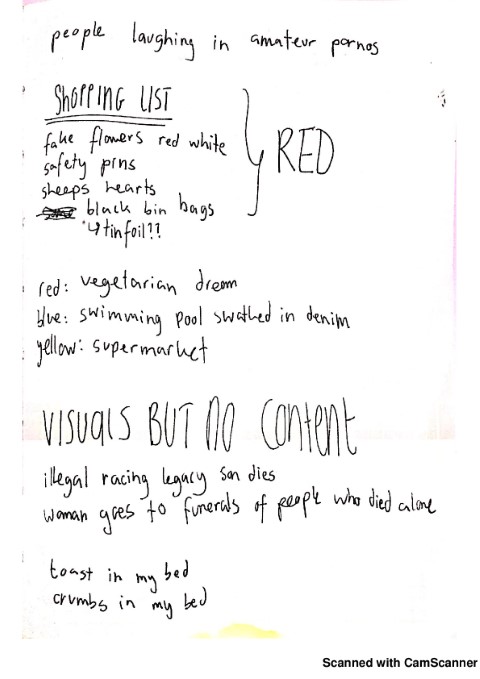 people laughing in amateur pornos
SHOPPING LIST
fake flowers red white
safety pins
sheeps hearts
black bin bags
↳ tinfoil??
RED
red: vegetarian dream
blue: swimming pool swathed in denim
yellow: supermarket
VISUALS BUT NO CONTENT
illegal racing legacy son dies
woman goes to funerals of people who died alone
toast in my bed
crumbs in my bed
Scanned with CamScanner